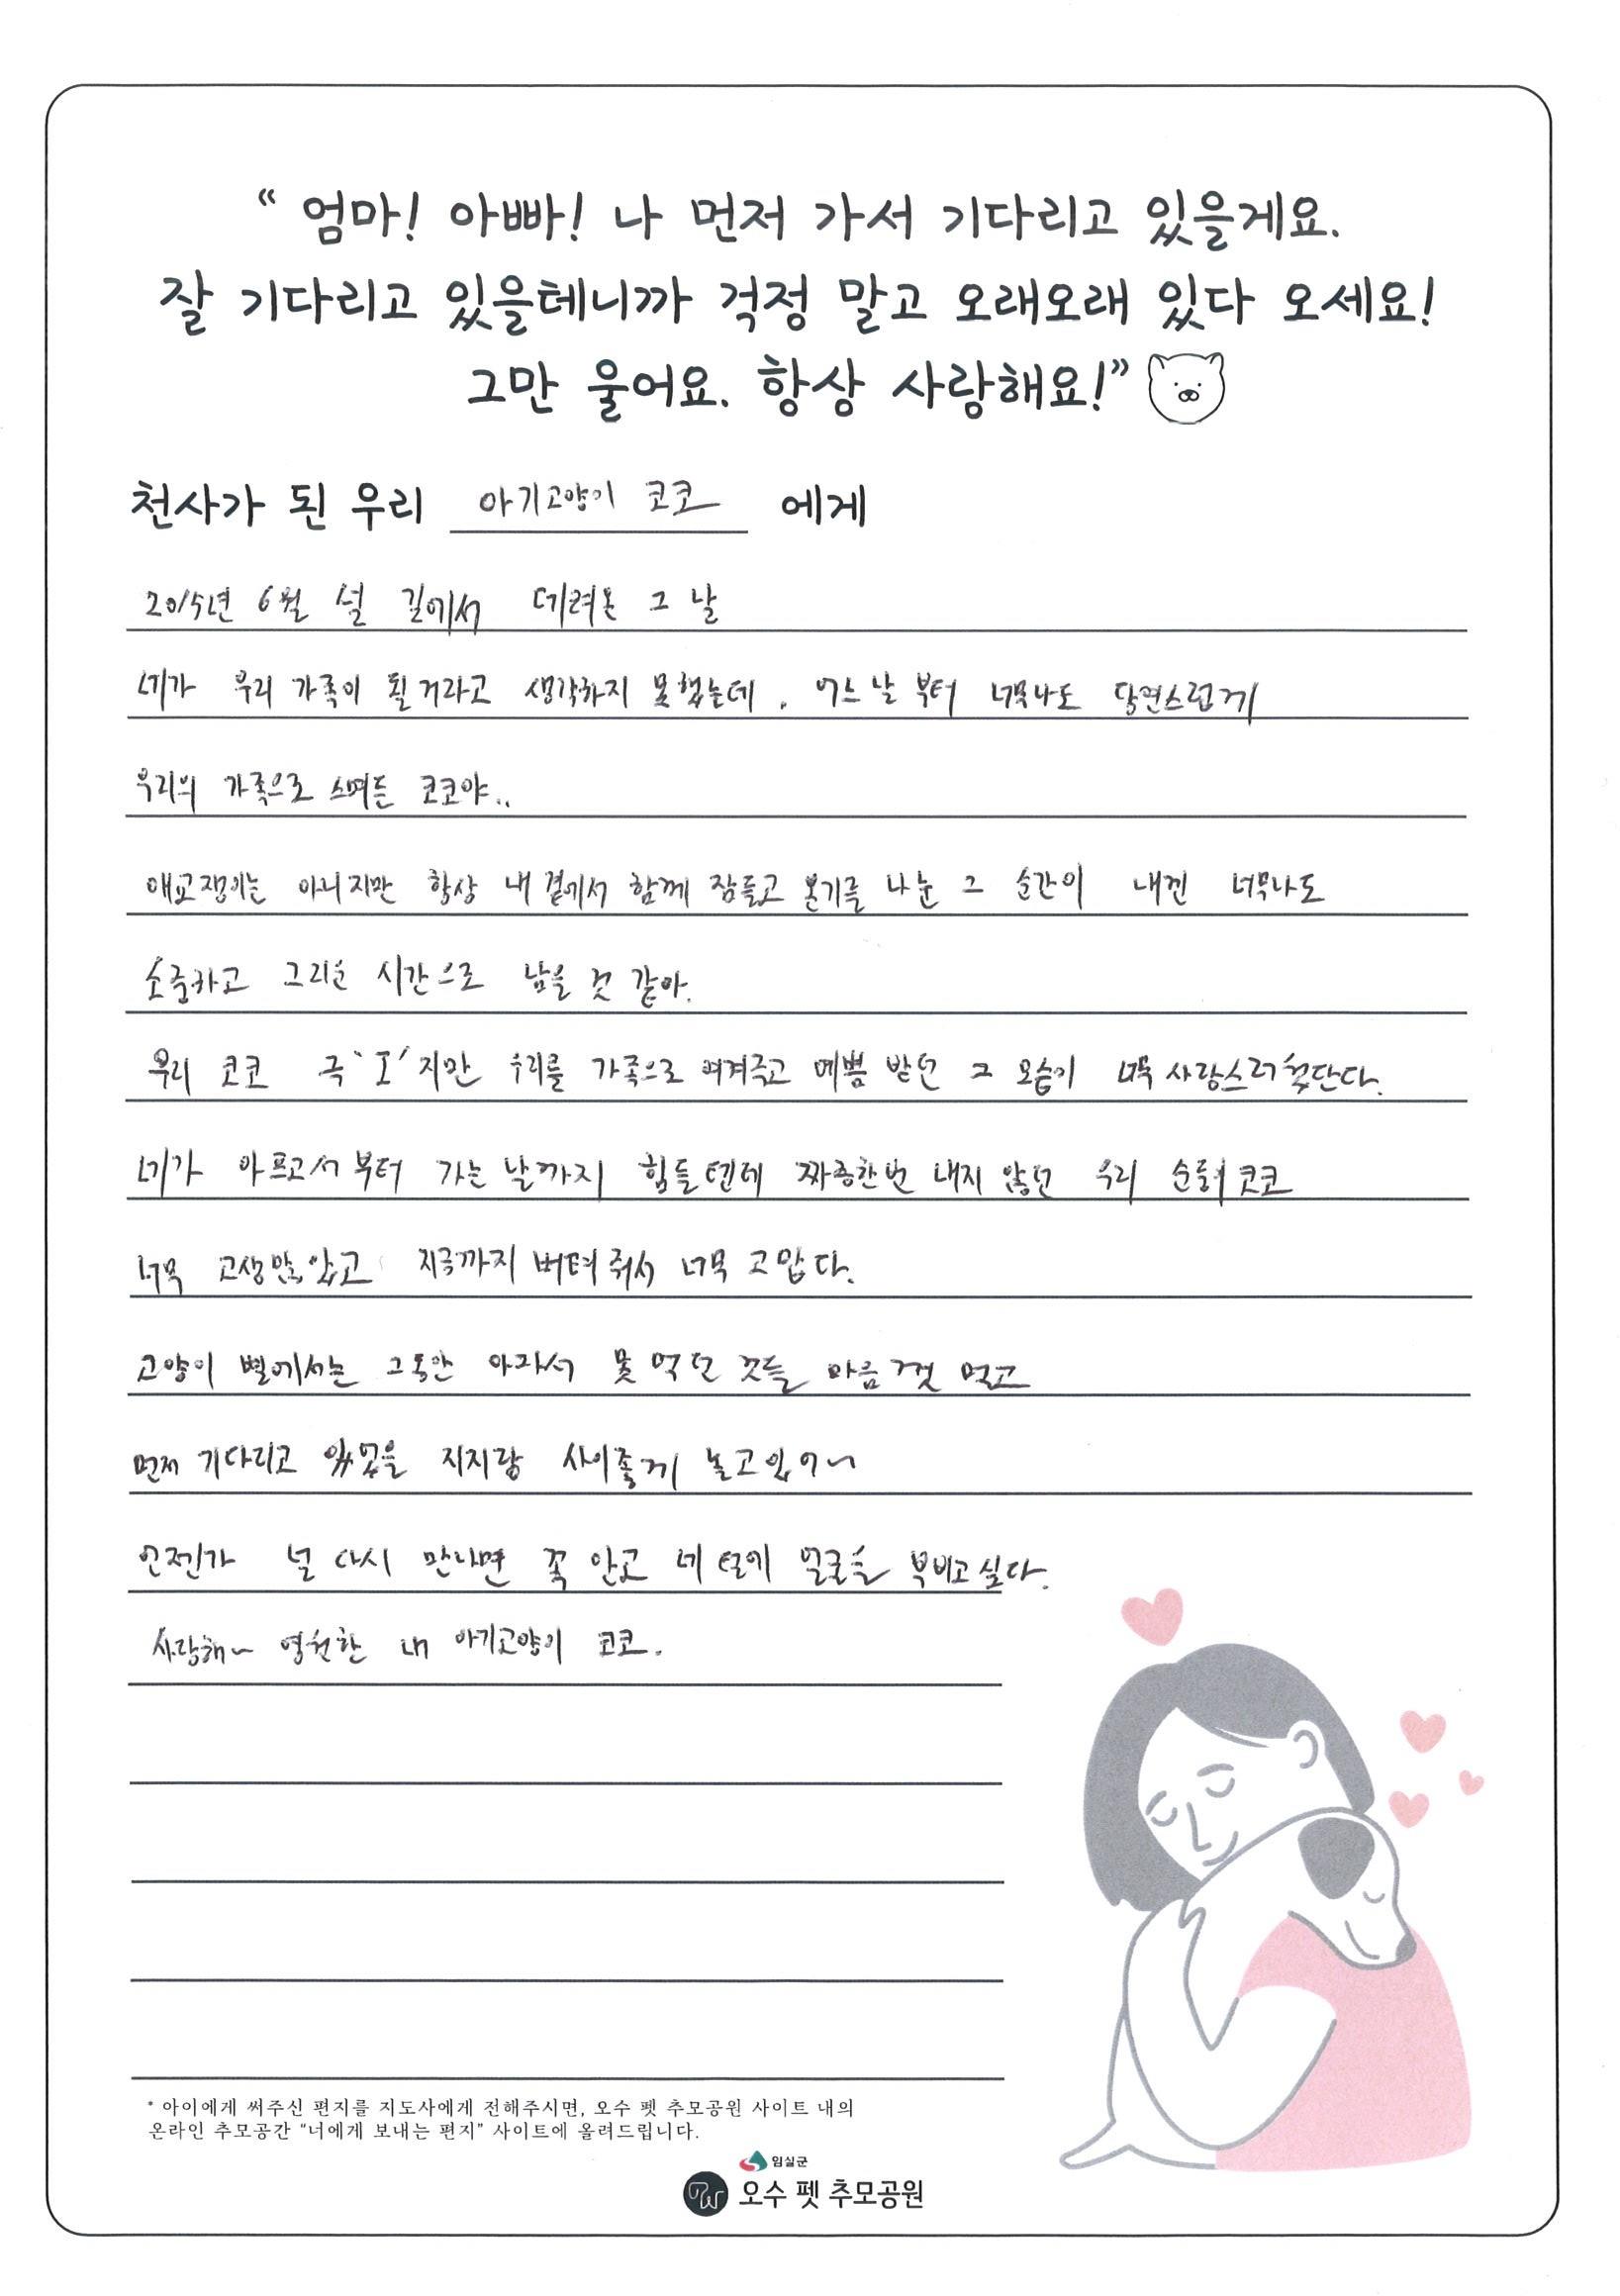 “ 엄마! 아빠! 나 먼저 가서 기다리고 있을게요.
잘 기다리고 있을테니까 걱정 말고 오래오래 있다 오세요!
그만 울어요. 항상 사랑해요!”
천사가 된 우리 아기고양이 코코 에게
2015년 6월 널 길에서 데려온 그 날
네가 우리 가족이 될거라고 생각하지 못했는데. 어느날 부터 너무나도 당연스럽게
우리의 가족으로 스며든 코코야..
애교쟁이는 아니지만 항상 내 곁에서 함께 잠들고 온기를 나눈 그 순간이 내겐 너무나도
소중하고 그리운 시간으로 남을 것 같아.
우리 코코 극'I'지만 우리를 가족으로 여겨주고 예쁨 받던 그 모습이 너무 사랑스러웠단다.
네가 아프고서부터 가는 날까지 힘들텐데 짜증한번 내지 않던 우리 순둥이 코코
너무 고생많았고 지금까지 버텨줘서 너무 고맙다.
고양이 별에서는 그동안 아파서 못 먹던 것들 마음껏 먹고
먼저 기다리고 있었을 지지랑 사이좋게 놀고있어~
언젠가 널 다시 만나면 꼭 안고 네 털에 얼굴을 부비고싶다.
사랑해~ 영원한 내 아기고양이 코코.
* 아이에게 써주신 편지를 지도사에게 전해주시면, 오수 펫 추모공원 사이트 내의
온라인 추모공간 “너에게 보내는 편지” 사이트에 올려드립니다.
임실군
오수 펫 추모공원